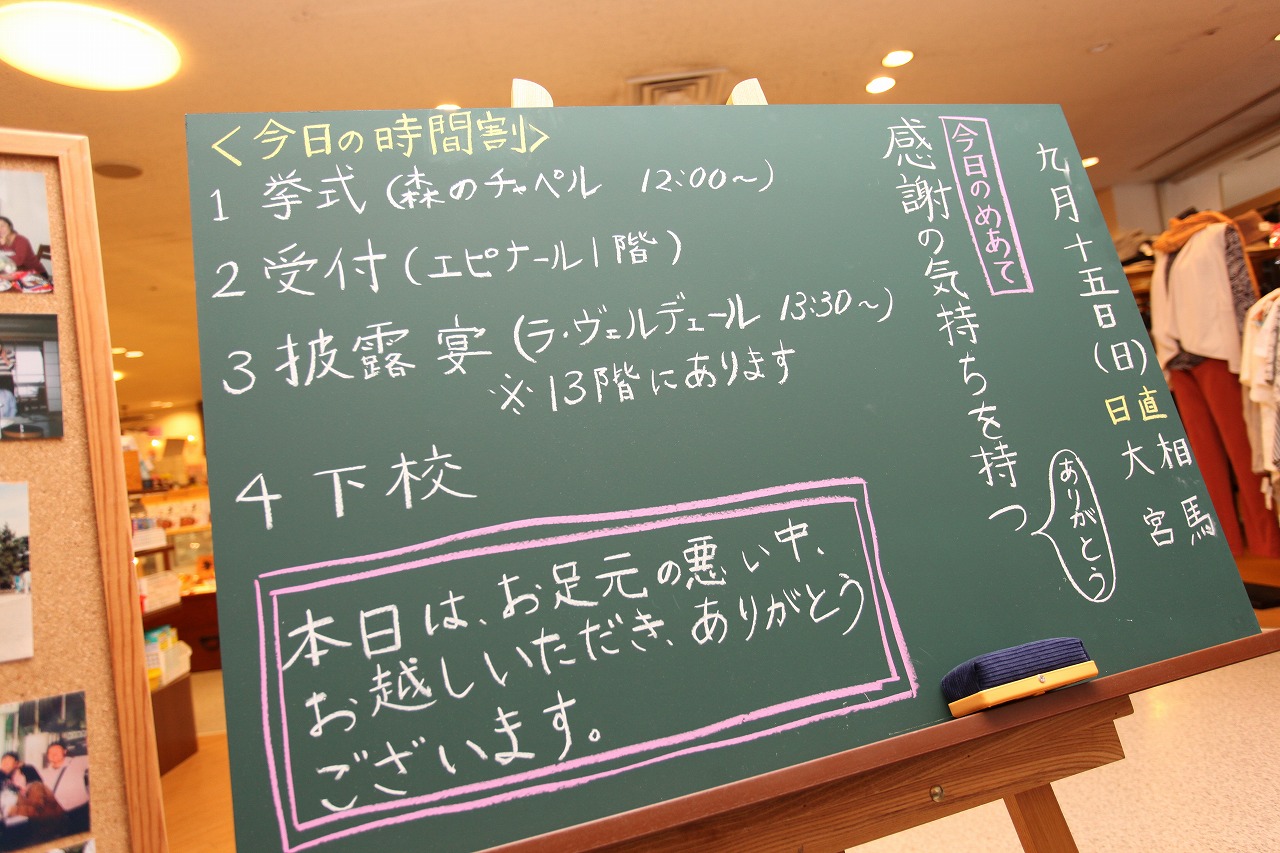 <今日の時間割>
1 挙式(森のチャペル 12:00~)
2 受付(エピナール1階)
3 披露宴(ラ・ヴェルデェール 13:30~)
※13階にあります
4 下校
本日は、お足元の悪い中、
お越しいただき、ありがとう
ございます。
九月十五日(日)
日直
相馬
大宮
今日のめあて
感謝の気持ちを持つ
ありがとう